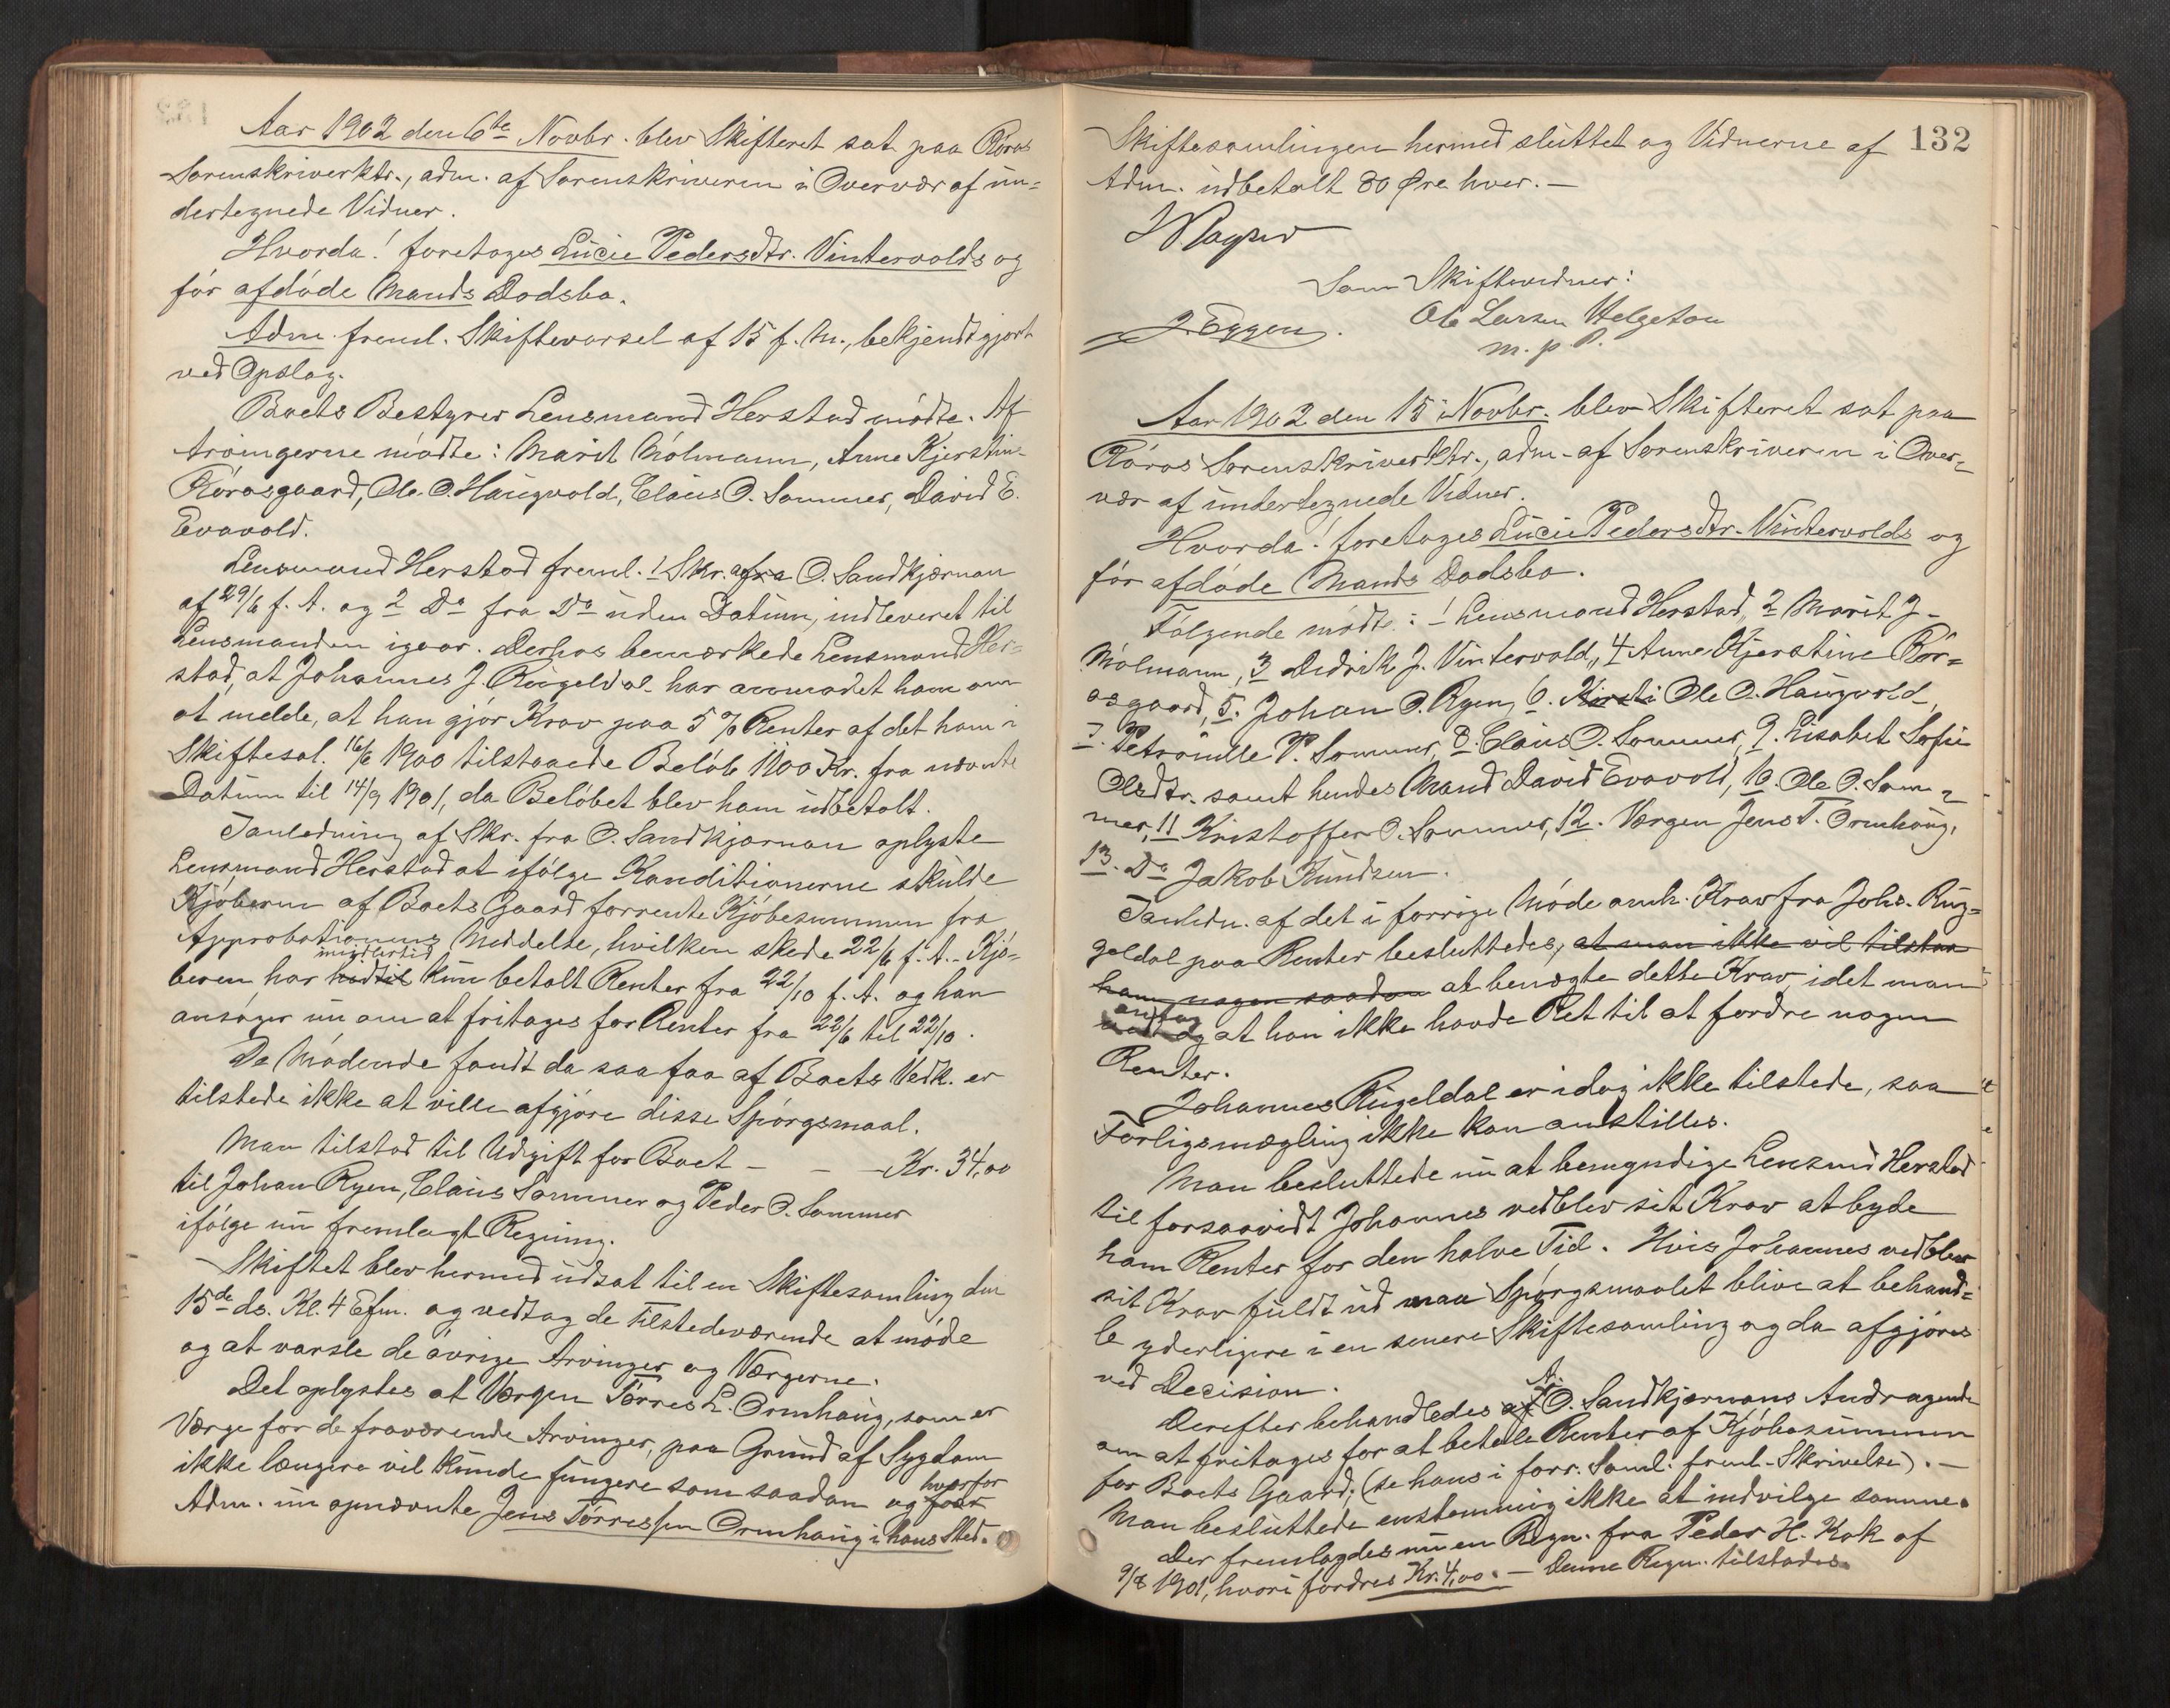 Aar 1902 den 6te Novbr. blev Skifteret sat paa Röros
Sorenskriverktr., adm. af Sorenskriveren i Overvær af un-
dertegnede Vidner.
Hvorda! foretoges Lucie Pedersdtr. Vintervolds og
før afdöde Mands Dødsbo.
Adm. freml. Skiftevarsel af 15 f. M., bekjendtgjort
ved Opslag.
Boets Bestyrer Lensmand Herstad mödte. Af
Arvingerne mödte: Marit Mölmann, Anne Kjerstine
Rörosgaard, Ole O. Haugvold, Claus O. Sommer, David E.
Evavold.
Lensmand Herstad freml. 1 Skr. fra O. Sandkjærnan
af 29/6 f. A. og 2 Do fra Do uden Datum, indleveret til
Lensmanden igaar. Derhos bemærkede Lensmand Her-
stad, at Johannes J. Rugeldal har anmodet ham om
at melde, at han gjör Krav paa 5 % Renter af det ham i
Skiftesal. 16/6 1900 tilstaaede Belöb 1100 Kr. fra nævnte
Datum til 14/9 1901, da Belöbet blev ham udbetalt.
Ianledning af Skr. fra O. Sandkjærnan oplyste
Lensmand Herstad at ifölge Konditionerne skulde
Kjöberen af Boets Gaard forrente Kjöbesummen fra
Approbationens Meddelse, hvilken skede 22/6 f. A. Kjö-
imidlertid
beren har hidtil kun betalt Renter fra 22/10 f. A. og han
ansöger nu om at fritages for Renter fra 22/6 til 22/10.
De Mödende fandt da saa faa af Boets Vedk. er
tilstede ikke at ville afgjöre disse Spörgsmaal.
Man tilstod til Udgift for Boet - - - Kr. 34,00
til Johan Ryen, Claus Sommer og Peder O. Sommer
ifölge nu fremlagt Regning.
Skiftet blev hermed udsat til en Skiftesamling den
15de ds. Kl. 4 Efm. og vedtog de Tilstedeværende at möde
og at varsle de övrige Arvinger og Værgerne.
Det oplystes at Værgen Törres L. Ormhaug, som er
Værge for de fraværende Arvinger, paa Grund af Sygdom
ikke længere vil kunde fungere som saadan og hvorfor
Adm. nu opnævnte Jens Törressen Ormhaug i hans Sted.
132
Skiftesamlingen hermed sluttet og Vidnerne af
Adm. udbetalt 80 Øre hver. -
Som Skiftevidner:
J. Eggen. Ole Larsen Helgetun
m. p. P.
Aar 1902 den 15 Novbr. blev Skifteret sat paa
Röros Sorenskriverktr., adm. af Sorenskriveren i Over-
vær af undertegnede Vidner.
Hvorda! foretoges Lucie Pedersdtr. Vintervolds og
för afdöde Mands Dødsbo.
Fölgende mödte: 1 Lensmand Herstad, 2 Marit J.
Mölmann, 3 Didrik J. Vintervold, 4 Anne Kjerstine Rör-
osgaard, 5. Johan O. Ryen, 6. Kirsti Ole O. Haugvold,
7. Petronille P. Sommer, 8. Claus O. Sommer, 9. Lisabet Sofie
Olsdtr. samt hendes Mand David Evavold, 10. Ole O. Som-
mer, 11 Kristoffer O. Sommer, 12. Værgen Jens T. Ormhaug,
13. Do Jakob Knudsen.
Ianledn. af det i forrige Möde omh. Krav fra Johs. Rug-
geldal paa Renter besluttedes, at man ikke vil tilstaa
ham nogen saadan at benægte dette Krav, idet man
antog
at han ikke havde Ret til at fordre nogen
Renter.
Johannes Rugeldal er idag ikke tilstede, saa
Forligsmægling ikke kan anstilles.
Man besluttede nu at bemyndige Lensmd Herstad
til forsaavidt Johannes vedblev sit Krav at byde
ham Renter for den halve Tid. Hvis Johannes vedblev
sit Krav fuldt ud maa Spörgsmaalet blive at behand-
le yderligere i en senere Skiftesamling og da afgjöres
ved Decision.
Derefter behandledes O. Sandkjærnans Andragende
om at fritages for at betale Renter af Kjöbesummen
for Boets Gaard; (se hans i forr. Saml. freml. Skrivelse). -
Man besluttede enstemmig ikke at indvilge samme.
Der fremlagdes nu en Regn. fra Peder H. Kok af
9/8 1901, hvori fordres Kr. 4,00. - Denne Regn. tilstodes.